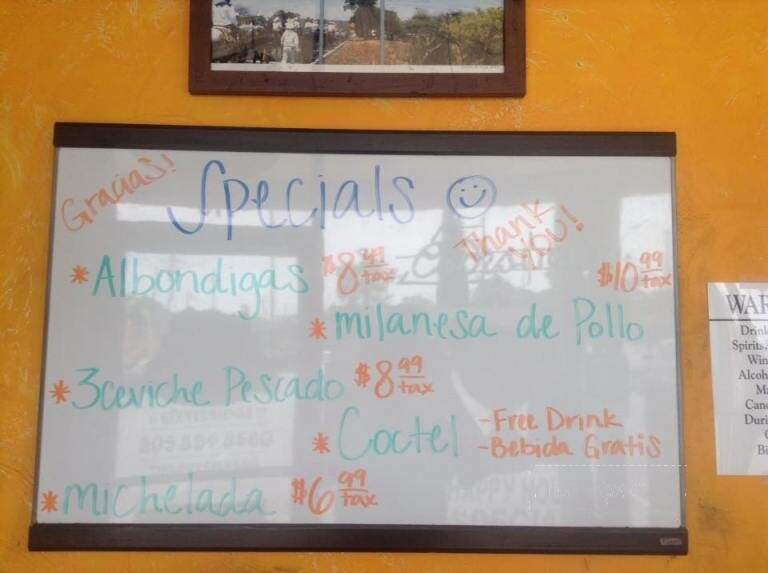 Gracias!
Specials
Thank you!
* Albondigas $8 49/tax
$10 99/tax
* milanesa de Pollo
* 3 ceviche Pescado $8 99/tax
* Coctel - Free Drink
- Bebida Gratis
* michelada $6 99/tax
WAR
Drink
Spirits
Win
Alcoh
Ma
Canc
Duri
Bi